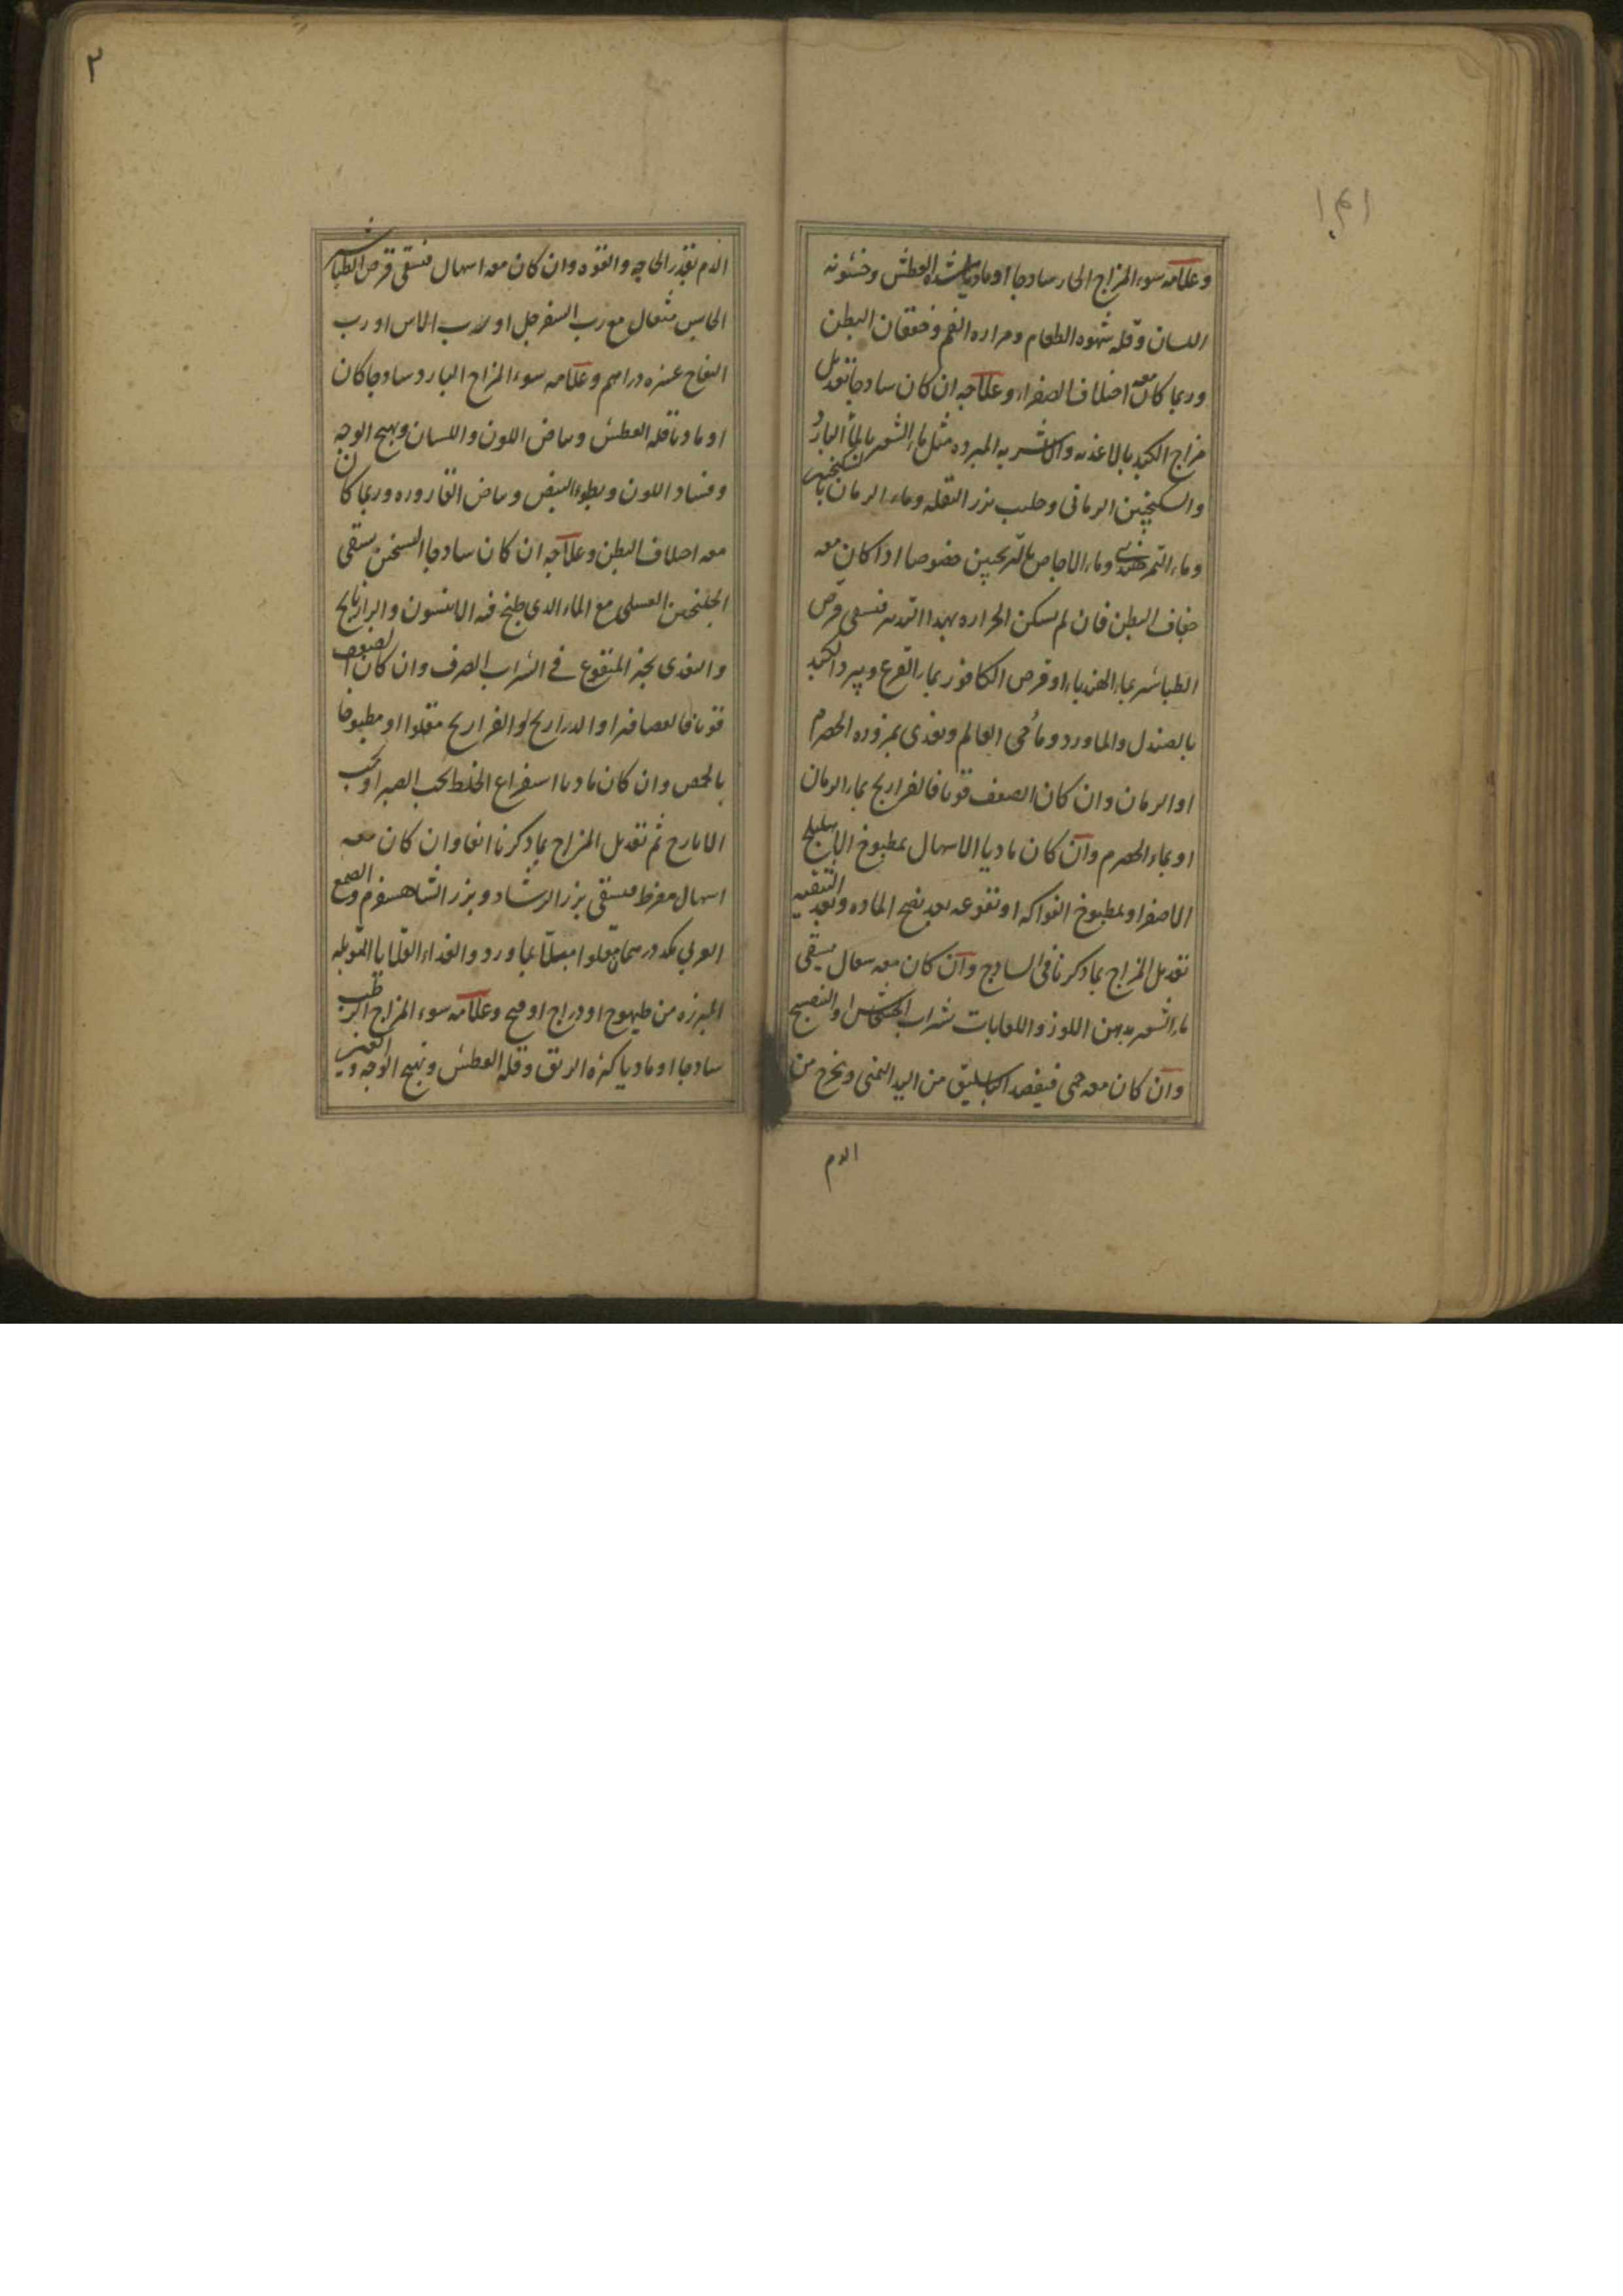 وعلامه سوء المزاج الحار سادجا او ماديا شده العطش وخشونه
اللسان وقله شهوه الطعام ومراره الفم وخفقان البطن
وربما كان معه اختلاف الصفراء وعلاجه ان كان سادجا تعديل
مزاج الكبد بالاغذيه والاشربه المبرده مثل ماء الشعير بالماء البارد
والسكنجبين الرماني وحليب بزر البقله وماء الرمان بالسكنجبين
وماء التمر هندي وماء الاجاص بالترنجبين خصوصا اذا كان معه
جفاف البطن فان لم يسكن الحراره بهذا التدبير فيسقى قرص
الطباشير بماء الهندباء او قرص الكافور بماء القرع ويبرد الكبد
بالصندل والماورد وماء حي العالم ويغذى بمزوره الحصرم
او الرمان وان كان الضعف قويا فالفراريج بماء الرمان
او بماء الحصرم وان كان ماديا الاسهال بمطبوخ الاهليلج
الاصفر او بمطبوخ الفواكه او نقوعه بعد نضج الماده وبعد التنقيه
تعديل المزاج بما ذكرنا في السادج وان كان معه سعال يسقى
ماء الشعير بدهن اللوز واللعابات بشراب الخشخاش او البنفسج
وان كان معه حمى فيفصد الباسليق من اليد اليمنى ويخرج من
الدم
٢
الدم بقدر الحاجه والقوه وان كان معه اسهال فيسقى قرص الطباشير
الحابس مثقال مع رب السفرجل او رب الاس او رب
التفاح عشره دراهم وعلامه سوء المزاج البارد سادجا كان
او ماديا قله العطش وبياض اللون واللسان وتهيج الوجه
وفساد اللون وبطوء النبض وبياض القاروره وربما كان
معه اختلاف البطن وعلاجه ان كان سادجا التسخين يسقى
الجلنجبين العسلي مع الماء الذي طبخ فيه الانيسون والرازيانج
والتغذى بخبز المنقوع في الشراب الصرف وان كان الضعف
قويا فالعصافير او الدراريج او الفراريج مقلوا او مطبوخا
بالحمص وان كان ماديا استفراغ الخلط بحب الصبر او بحب
الايارج ثم تعديل المزاج بما ذكرنا انفا وان كان معه
اسهال مفرط فيسقى بزر الرشاد وبزر الشاهسفرم والصمغ
العربي مكد درهمان مقلوا مبتلا بماورد والغذاء القلايا المتوبله
المبرزه من طيهوج او دراج او قبج وعلامه سوء المزاج الرطب
سادجا او ماديا كثره الريق وقله العطش وتهيج الوجه والعينين